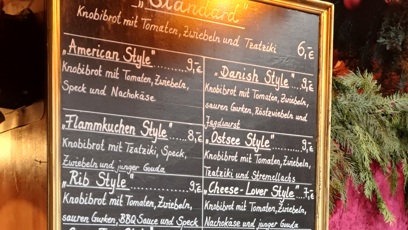 „Standard"
Knobibrot mit Tomaten, Zwiebeln und Tzatziki 6,-€
„American Style" 9,-€
Knobibrot mit Tomaten, Zwiebeln,
Speck und Nachokäse
„Danish Style" 9,-€
Knobibrot mit Tomaten, Zwiebeln,
sauren Gurken, Röstzwiebeln und
Jagdwurst
„Flammkuchen Style" 8,-€
Knobibrot mit Tzatziki, Speck,
Zwiebeln und junger Gouda
„Ostsee Style" 9,-€
Knobibrot mit Tomaten, Zwiebeln,
Tzatziki und Stremellachs
„Rib Style" 9,-€
Knobibrot mit Tomaten, Zwiebeln,
sauren Gurken, BBQ Sauce und Speck
„Cheese-Lover Style" 7,-€
Knobibrot mit Tomaten, Zwiebeln,
Nachokäse und junger Gouda